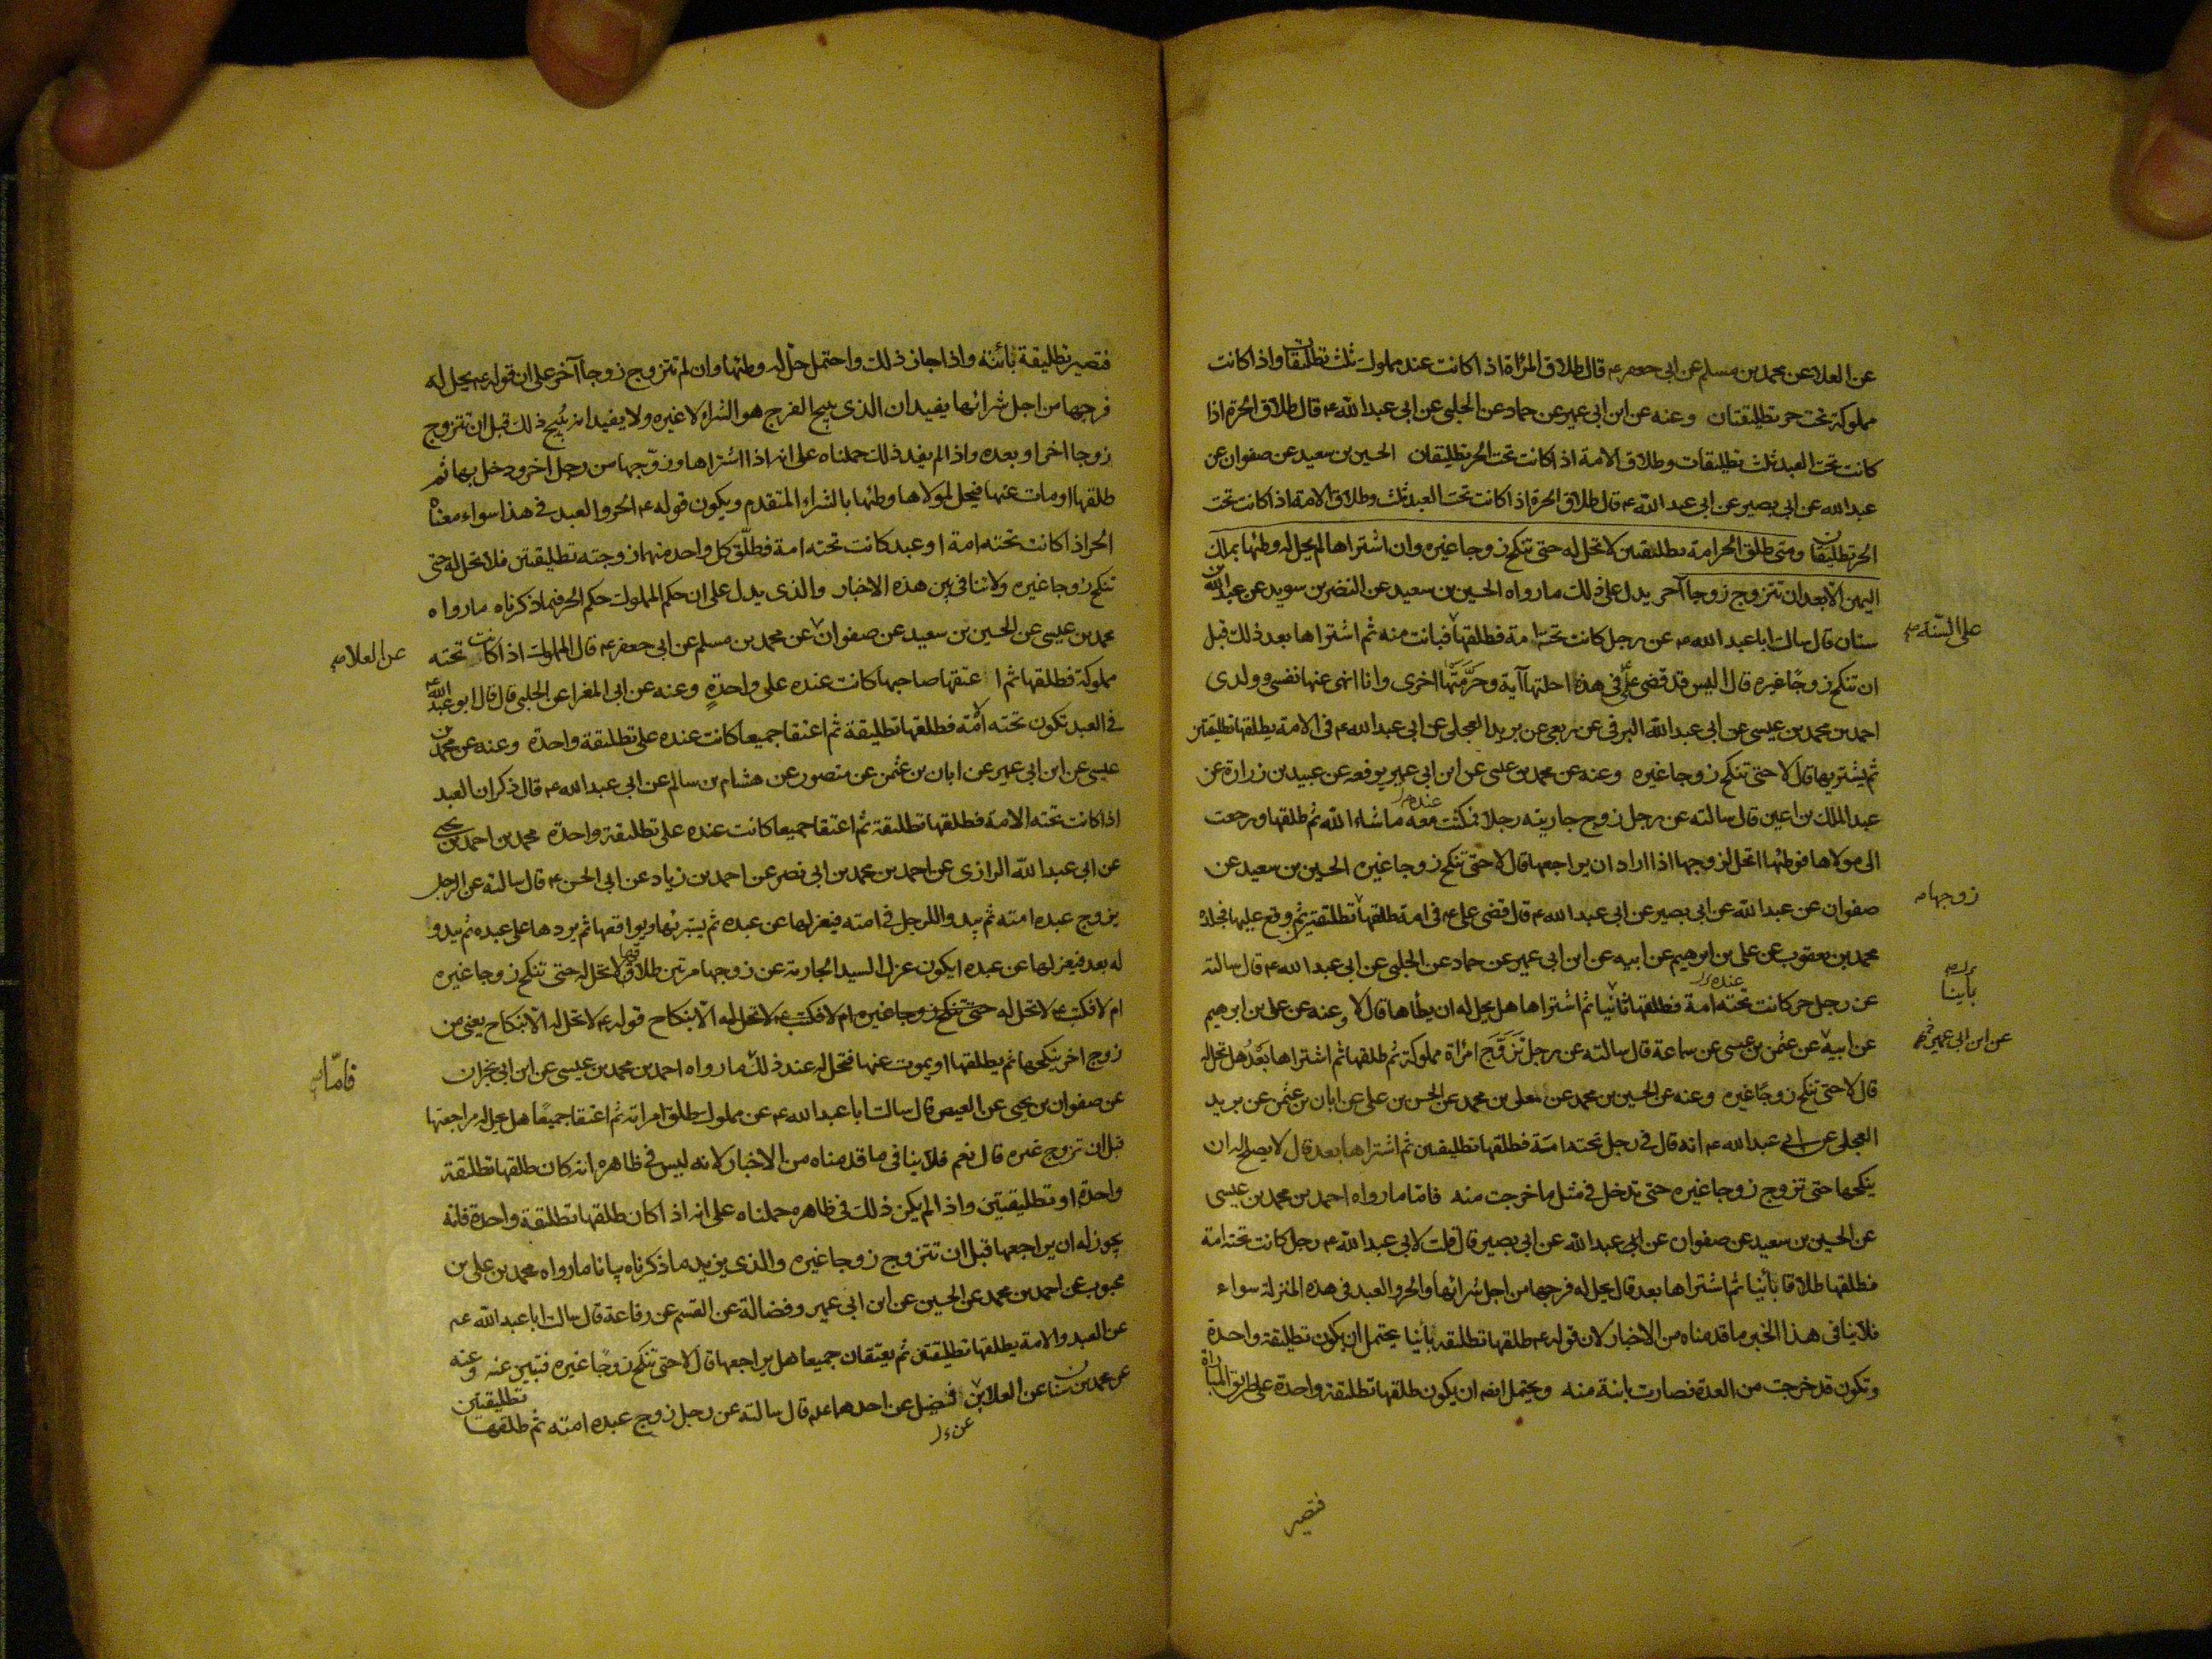 عن العلا عن محمد بن مسلم عن ابی جعفر ع قال طلاق المراة اذا كانت عند مملوك ثلث تطليقات واذا كانت
مملوكة تحت حر تطليقتان وعنه عن ابن ابی عمير عن حماد عن الحلبی عن ابی عبد الله ع قال طلاق الحرة اذا
كانت تحت العبد ثلث تطليقات وطلاق الامة اذا كانت تحت الحر تطليقتان الحسين بن سعيد عن صفوان عن
عبد الله عن ابی بصير عن ابی عبد الله ع قال طلاق الحرة اذا كانت تحت العبد ثلث وطلاق الامة اذا كانت تحت
الحر تطليقتان ومتى طلق الحر امة تطليقتين لا تحل له حتى تنكح زوجا غيره وان اشتراها لم يحل له وطئها بملك
اليمين الا بعد ان تتزوج زوجا آخر يدل على ذلك ما رواه الحسين بن سعيد عن النضر بن سويد عن عبد الله بن
سنان قال سالت ابا عبد الله ع عن رجل كانت تحته امة فطلقها فبانت منه ثم اشتراها بعد ذلك قبل
على السنة
ان تنكح زوجًا غيره قال اليس قد قضى علی فی هذه احلتها آية وحرمتها اخرى وانا انهى عنها نفسی وولدی
احمد بن محمد بن عيسى عن ابی عبد الله البرقی عن ربعی عن بريد العجلی عن ابی عبد الله ع فی الامة يطلقها تطليقتين
ثم يشتريها قال لا حتى تنكح زوجا غيره وعنه عن محمد بن عيسى عن ابن ابی عمير يرفعه عن عبيد بن زرارة عن
عبد الملك بن اعين قال سالته عن رجل زوج جاريته رجلا فمكثت معه ما شاء الله ثم طلقها ورجعت
عنده
الى مولاها فوطئها اتحل لزوجها اذا اراد ان يراجعها قال لا حتى تنكح زوجا غيره الحسين بن سعيد عن
صفوان عن عبد الله عن ابی بصير عن ابی عبد الله ع قال قضى علی ع فی امة طلقها تطليقتين ثم وقع عليها فجلده
زوجها
محمد بن يعقوب عن علی بن ابرهيم عن ابيه عن ابن ابی عمير عن حماد عن الحلبی عن ابی عبد الله ع قال سالته
عن رجل حر كانت تحته امة فطلقها ثانيا ثم اشتراها هل يحل له ان يطأها قال لا وعنه عن علی بن ابرهيم
عنده
بأينا
عن ابيه عن عثمن بن عيسى عن سماعة قال سالته عن رجل تزوج امراة مملوكة ثم طلقها ثم اشتراها بعد هل تحل له
عن ابن ابی عمير
قال لا حتى تنكح زوجًا غيره وعنه عن الحسين بن محمد عن معلى بن محمد عن الحسن بن علی عن ابان بن عثمن عن بريد
العجلی عن ابی عبد الله ع انه قال فی رجل تحته امة فطلقها تطليقتين ثم اشتراها بعد قال لا يصلح له ان
ينكحها حتى تزوج زوجا غيره حتى تدخل فی مثل ما خرجت منه فاما ما رواه احمد بن محمد بن عيسى
عن الحسين بن سعيد عن صفوان عن ابی عبد الله عن ابی بصير قال قلت لابی عبد الله ع رجل كانت تحته امة
فطلقها طلاقا بأئنا ثم اشتراها بعد قال يحل له فرجها من اجل شرائها والحر والعبد فی هذه المنزلة سواء
فلا ينافی هذا الخبر ما قدمناه من الاخبار لان قوله ع طلقها تطليقة بأينا يحتمل ان يكون تطليقة واحدة
وتكون قد خرجت من العدة فصارت باينة منه ويحتمل ايضا ان يكون طلقها تطليقة واحدة على طريق المباراة
فتصير
فتصير تطليقة بائنة واذا جاز ذلك واحتمل حل له وطئها وان لم تتزوج زوجا آخر على ان قوله ع يحل له
فرجها من اجل شرائها يفيد ان الذی يبيح الفرج هو الشراء لا غيره ولا يفيد انه يبيح ذلك قبل ان تتزوج
زوجا اخر او بعده واذا لم يفد ذلك حملناه على انه اذا اشتراها وزوّجها من رجل اخر ودخل بها ثم
طلقها او مات عنها فيحل لمولاها وطئها بالشراء المتقدم ويكون قوله ع الحر والعبد فی هذا سواء معناه
الحر اذا كانت تحته امة او عبد كانت تحته امة فطلّق كل واحد منهما زوجته تطليقتين فلا تحل له حتى
تنكح زوجا غيره ولا تنافی بين هذه الاخبار والذی يدل على ان حكم المملوك حكم الحر فيما ذكرناه ما رواه
محمد بن عيسى عن الحسين بن سعيد عن صفوان عن محمد بن مسلم عن ابی جعفر ع قال المملوك اذا كانت تحته
عن العلا
مملوكة فطلقها ثم اعتقها صاحبها كانت عنده على واحدةٍ وعنه عن ابی المغرا عن الحلبی قال قال ابو عبد الله ع
فی العبد تكون تحته الامة فطلقها تطليقة ثم اعتقا جميعا كانت عنده على تطليقة واحدة وعنه عن محمد بن
عيسى عن ابن ابی عمير عن ابان بن عثمن عن منصور عن هشام بن سالم عن ابی عبد الله ع قال ذكر ان العبد
اذا كانت تحته الامة فطلقها تطليقة ثم اعتقا جميعا كانت عنده على تطليقة واحدة محمد بن احمد بن يحيى
عن ابی عبد الله الرازی عن احمد بن محمد بن ابی نصر عن احمد بن زياد عن ابی الحسن ع قال سالته عن الرجل
يزوج عبده امته ثم يبدو للرجل فی امته فيعزلها عن عبده ثم يستبرئها ويواقعها ثم يردها على عبده ثم يبدو
له بعد فيعزلها عن عبده ايكون عزل السيد الجارية عن زوجها مرتين طلاقها لا تحل له حتى تنكح زوجا غيره
ام لا فكتب ع لا تحل له حتى تنكح زوجا غيره ام لا فكتب ع لا تحل له الا بنكاح قوله ع لا تحل له الا بنكاح يعنی من
زوج اخر ينكحها ثم يطلقها او يموت عنها فتحل له عند ذلك ما رواه احمد بن محمد بن عيسى عن ابن ابی نجران
فامّا
عن صفوان بن يحيى عن العيص قال سالت ابا عبد الله ع عن مملوك طلق امراته ثم اعتقا جميعًا هل يحل له مراجعتها
قبل ان تزوج غيره قال نعم فلا ينافی ما قدمناه من الاخبار لانه ليس فی ظاهره انه كان طلقها تطليقة
واحدة او تطليقتين واذا لم يكن ذلك فی ظاهره حملناه على انه اذا كان طلقها تطليقة واحدة فانه
يجوز له ان يراجعها قبل ان تتزوج زوجا غيره والذی يزيد ما ذكرناه بيانا ما رواه محمد بن علی بن
محبوب عن احمد بن محمد عن الحسين عن ابن ابی عمير وفضالة عن القسم عن رفاعة قال سالت ابا عبد الله ع
عن العبد والامة يطلقها تطليقتين ثم يعتقان جميعا هل يراجعها قال لا حتى تنكح زوجًا غيره فتبين منه وعنه
عن محمد بن سنان عن العلا بن فضيل عن احدهما ع قال سالته عن رجل زوج عبده امته ثم طلقها تطليقتين
عن